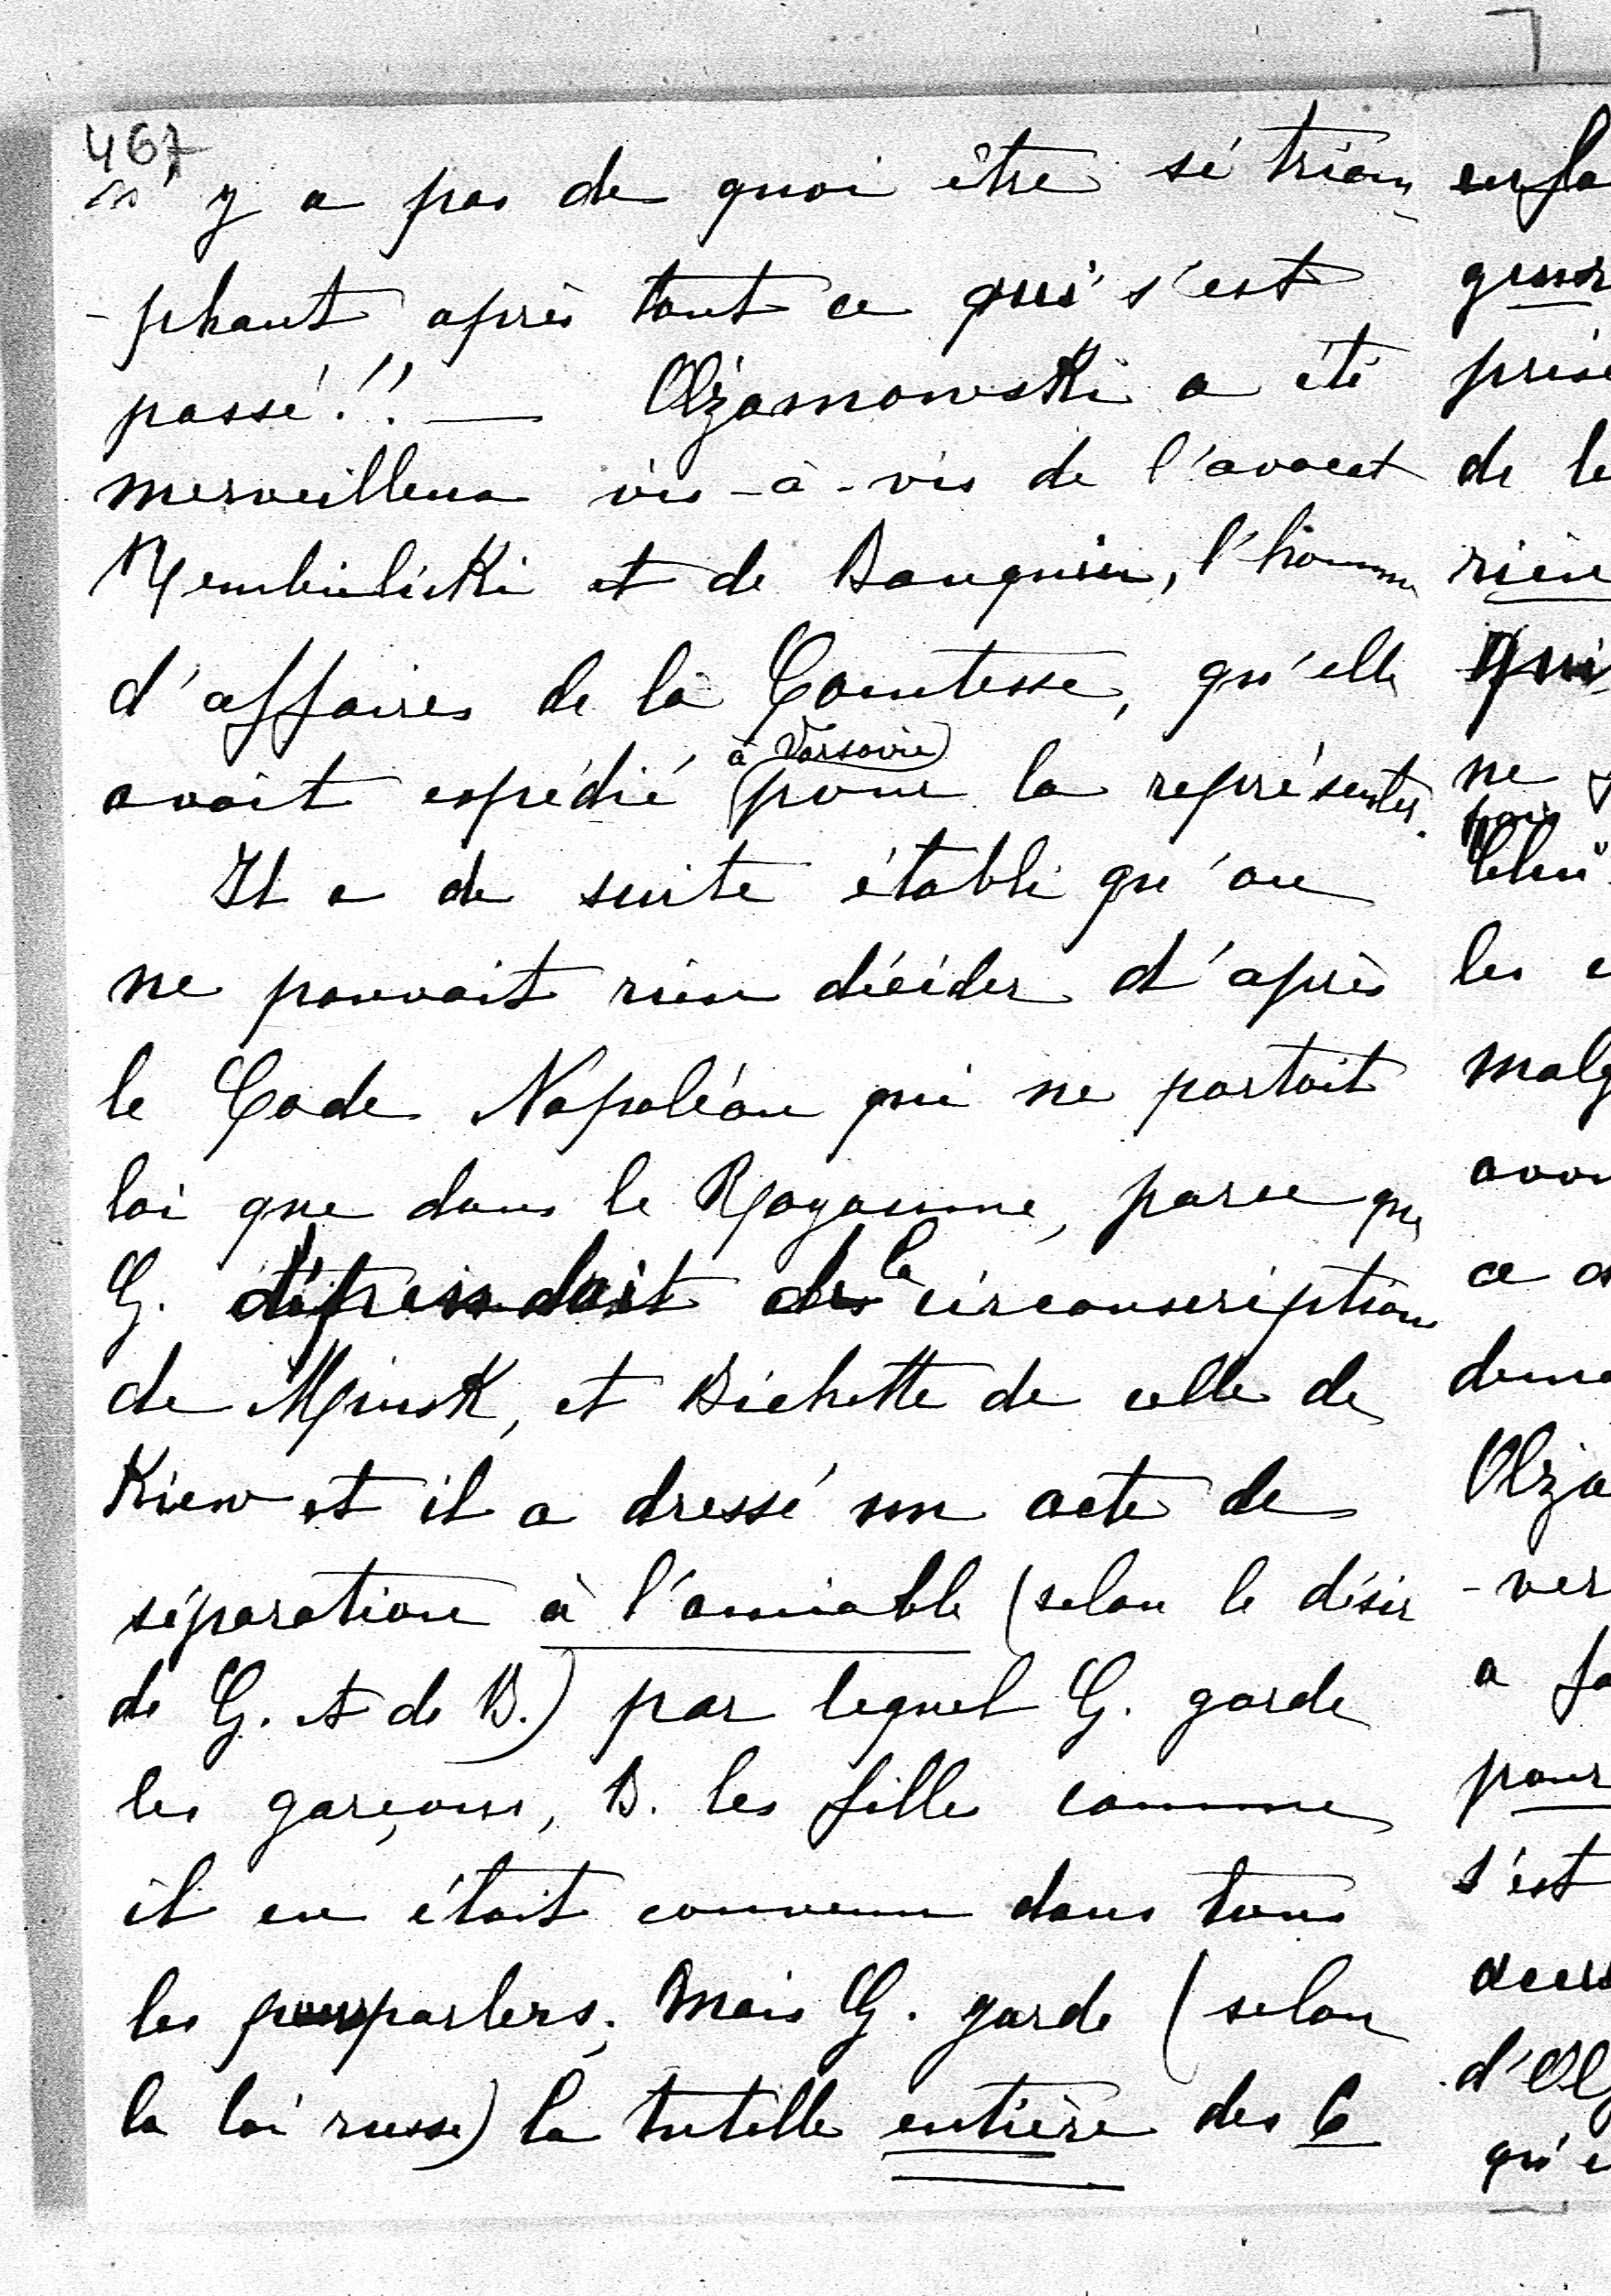 467
n'y a pas de quoi être si triom
-phant après tout ce qui s'est
passé!! — Olzamowski a été
merveilleux vis-à-vis de l'avocat
et de l'homme
d'affaires de la Comtesse, qu'elle
à Varsovie
avait expédié pour la représenter.
Il a de suite établi qu'on
ne pouvait rien décider d'après
le Code Napoléon qui ne portait
loi que dans le Royaume, parce que
G. dépendait de la circonscription
de Minsk, et Bichette de celle de
Kiew et il a dressé un acte de
séparation à l'amiable (selon le désir
de G. et de B.) par lequel G. garde
les garçons, B. les fille comme
il en était convenu dans tous
les pourparlers; Mais G. garde (selon
la loi russe) la tutelle entière des 6
enfa
prise
de le
ne
les
malg
avon
ce
Olza
-ver
a fa
pour
s'est
qu'e